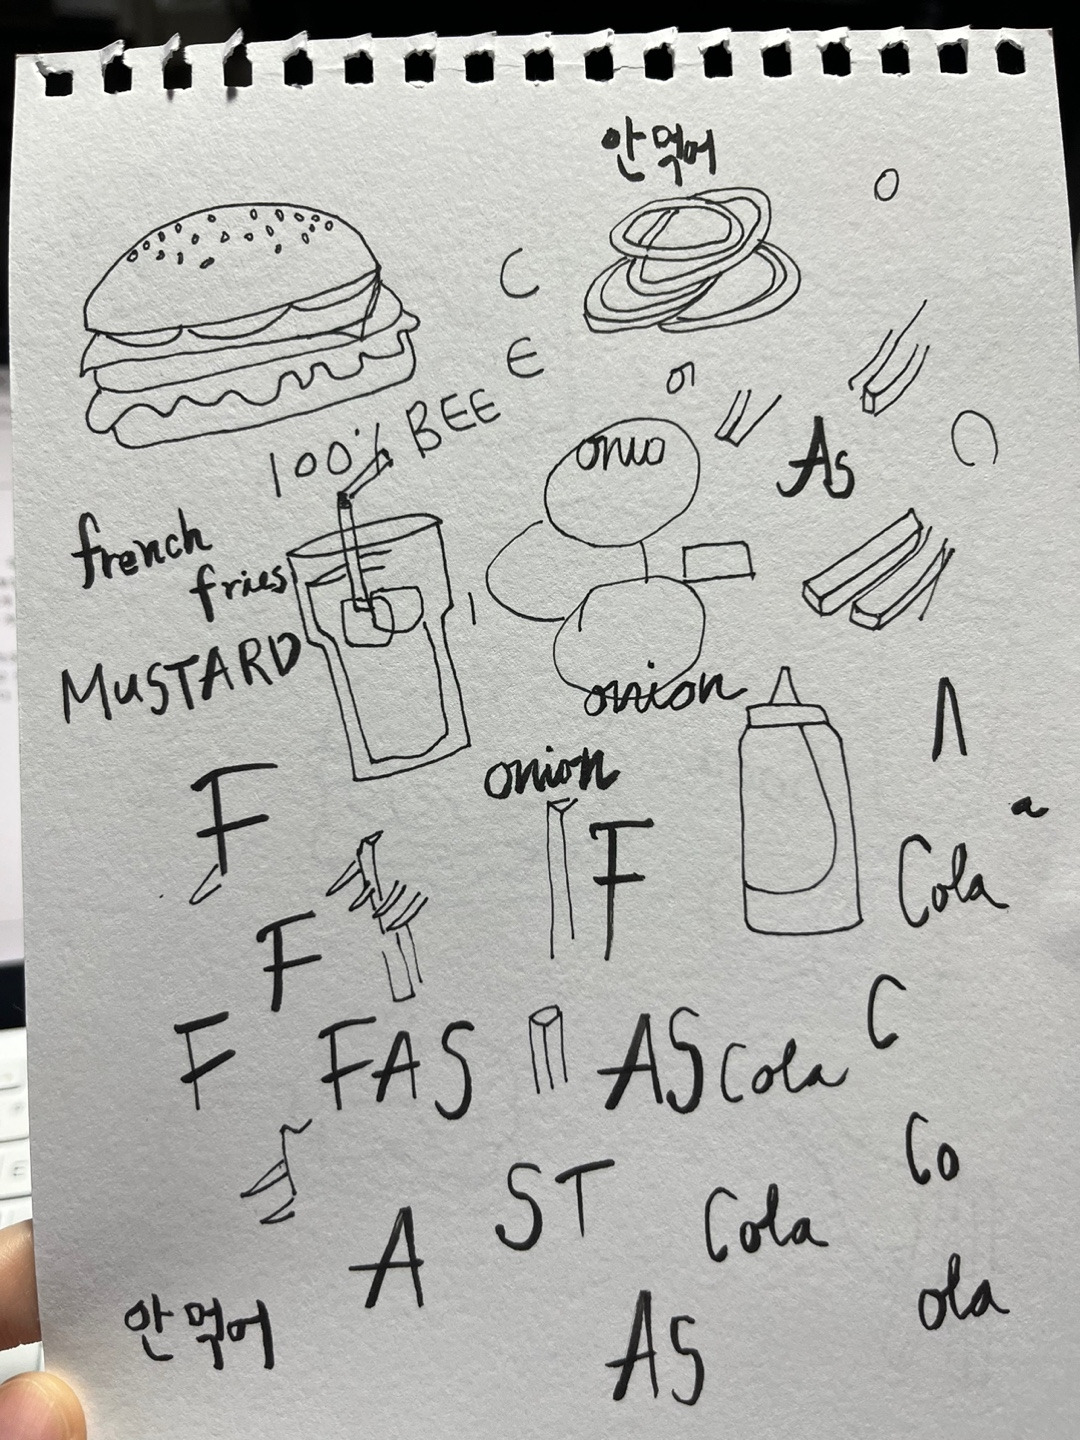 안먹어
C
E
100% BEE
onio
As
french
fries
MUSTARD
onion
onion
F
F
a
Cola
F
F
FAS
AS
Cola
C
Co
ST
A
Cola
ola
안먹어
AS